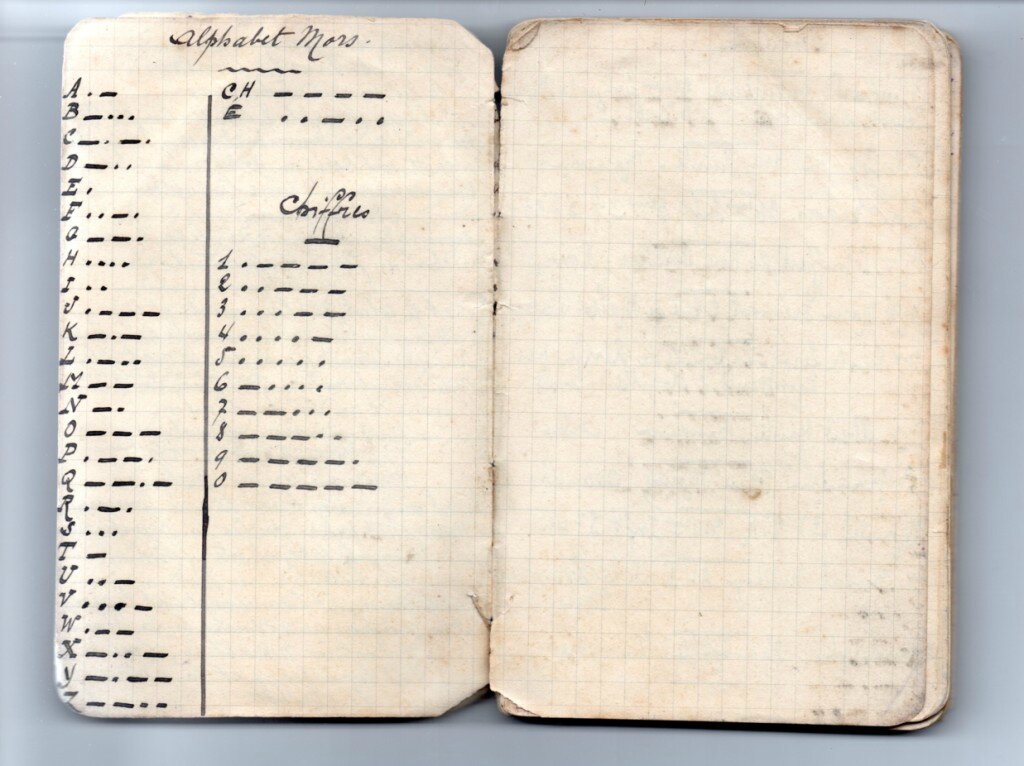 Alphabet Mors.
A . —
B — . . .
C — . — .
D — . .
E .
F . . — .
G — — .
H . . . .
I . .
J . — — —
K — . —
L . — . .
M — —
N — .
O — — —
P . — — .
Q — — . —
R . — .
S . . .
T —
U . . —
V . . . —
W . — —
X — . . —
Y — . — —
Z — — . .
CH — — — —
E . . — . .
Chiffres
1 . — — — —
2 . . — — —
3 . . . — —
4 . . . . —
5 . . . . .
6 — . . . .
7 — — . . .
8 — — — . .
9 — — — — .
0 — — — — —